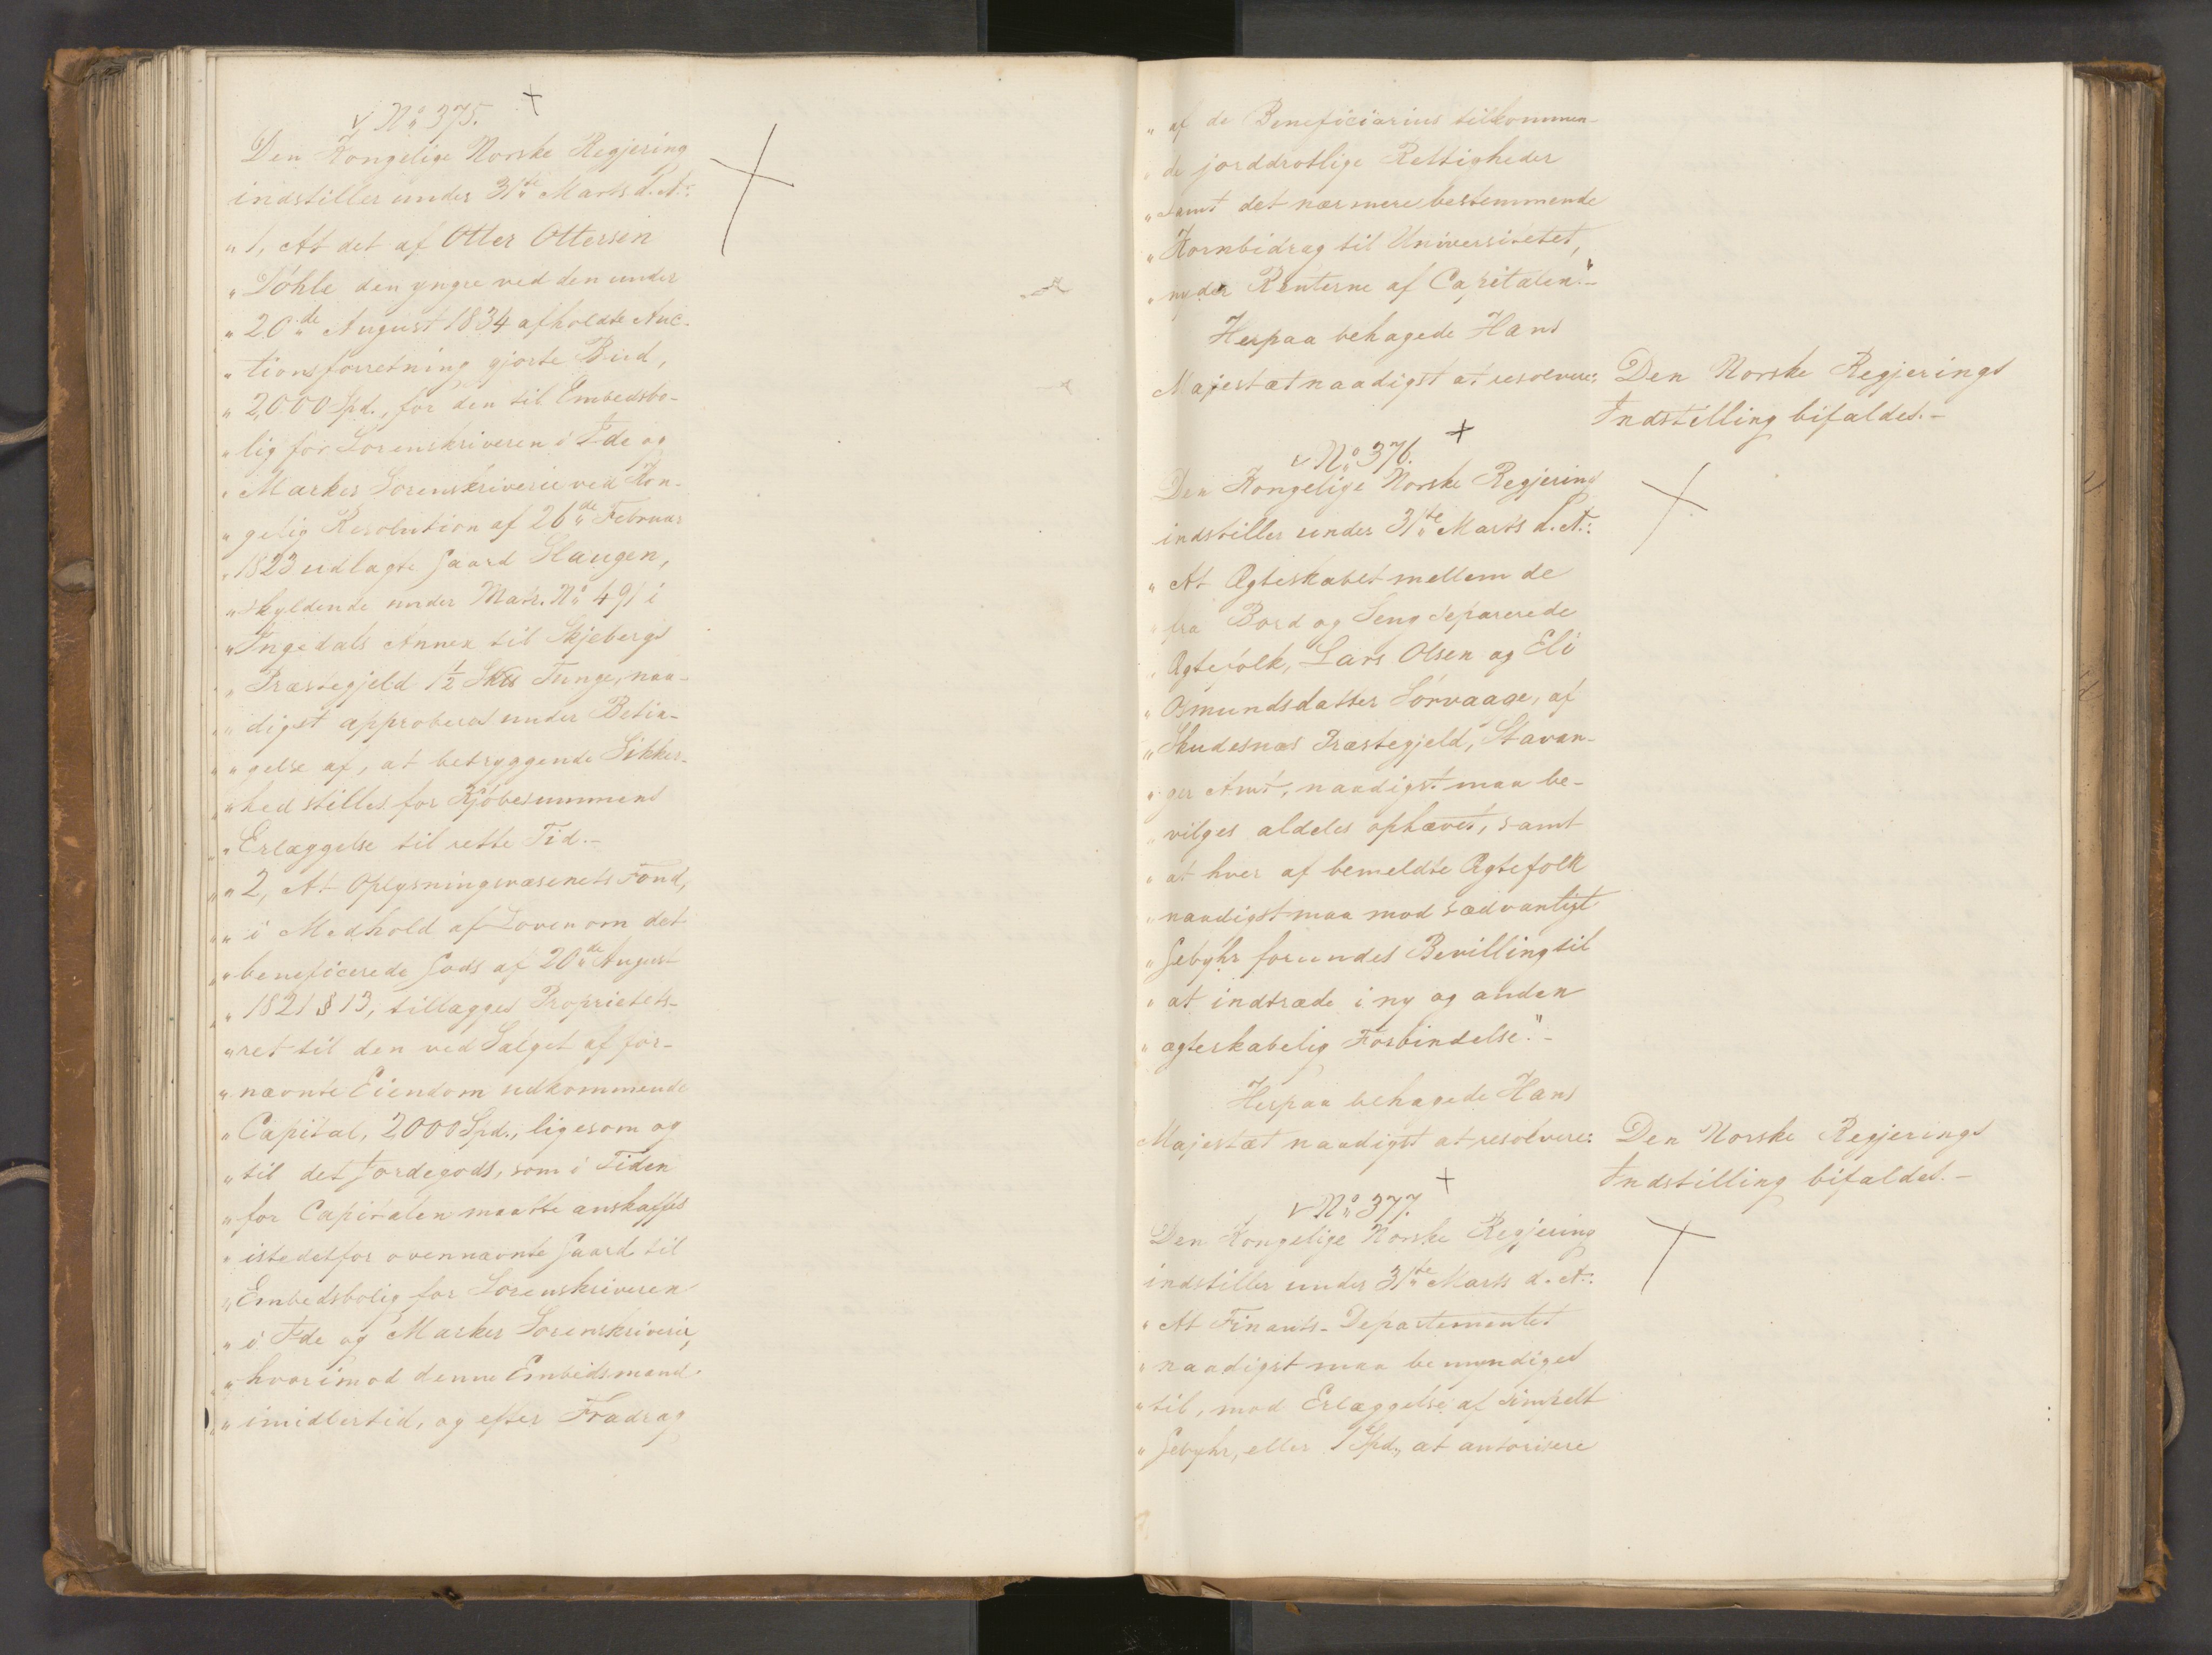 No 375.
Den Kongelige Norske Regjering
indstiller under 31te Marts d. A.:
„1, At det af Otter Ottersen
„Döhle den yngre ved den under
„20de August 1834 afholdte Auc-
„tionsforretning gjorte Bud,
„2,000 Spd., for den til Embedsbo-
„lig for Sorenskriveren i Ide og
„Markers Sorenskriverie ved Kon-
„gelig Resolution af 26de Februar
„1823 udlagte Gaard Haugen,
„skyldende under Matr. No 491 i
„Ingedals Annex til Skjebergs
„Præstegjeld 1 1/2 Skd Tunge, naa-
„digst approberes under Betin-
„gelse af, at betryggende Sikker-
„hed stilles for Kjöbesummens
„Erlæggelse til rette Tid.-
„2, At Oplysningsvæsenets Fond,
„i Medhold af Loven om det
„beneficerede Gods af 20de August
„1821 § 13, tillægges Proprietets-
„ret til den ved Salget af for-
„nævnte Eiendom udkommende
„Capital, 2000 Spd., ligesom og
„til det Jordegods, som i Tiden
„for Capitalen maatte anskaffes
„istedetfor ovennævnte Gaard til
„Embedsbolig for Sorenskriveren
„i Ide og Markers Sorenskriverie,
„hvorimod denne Embedsmand
„imidlertid, og efter Fradrag
„af de Beneficiarius tilkommen-
„de jorddrotlige Rettigheder
„samt det nærmere bestemmende
„Kornbidrag til Universitetet,
„nyder Renterne af Capitalen."-
Herpaa behagede Hans
Majestæt naadigst at resolvere:
Den Norske Regjerings
Indstilling bifaldes.-
No 376.
Den Kongelige Norske Regjering
indstiller under 31te Marts d. A.:
„At Ægteskabet mellem de
„fra Bord og Seng separerede
„Ægtefolk, Lars Olsen og Eli
„Osmundsdatter Sörvaage, af
„Skudesnæs Præstegjeld, Stavan-
„ger Amt, naadigst maa be-
„vilges aldeles ophævet, samt
„at hver af bemeldte Ægtefolk
„naadigst maa mod sædvanligt
„Gebyhr forundes Bevilling til
„at indtræde i ny og anden
„ægteskabelig Forbindelse."-
Herpaa behagede Hans
Majestæt naadigst at resolvere:
Den Norske Regjerings
Indstilling bifaldes.-
No 377.
Den Kongelige Norske Regjering
indstiller under 31te Marts d. A.:
„At Finants-Departementet
„naadigst maa bemyndiges
„til, mod Erlæggelse af simpelt
„Gebyhr, eller 1 Spd., at autorisere